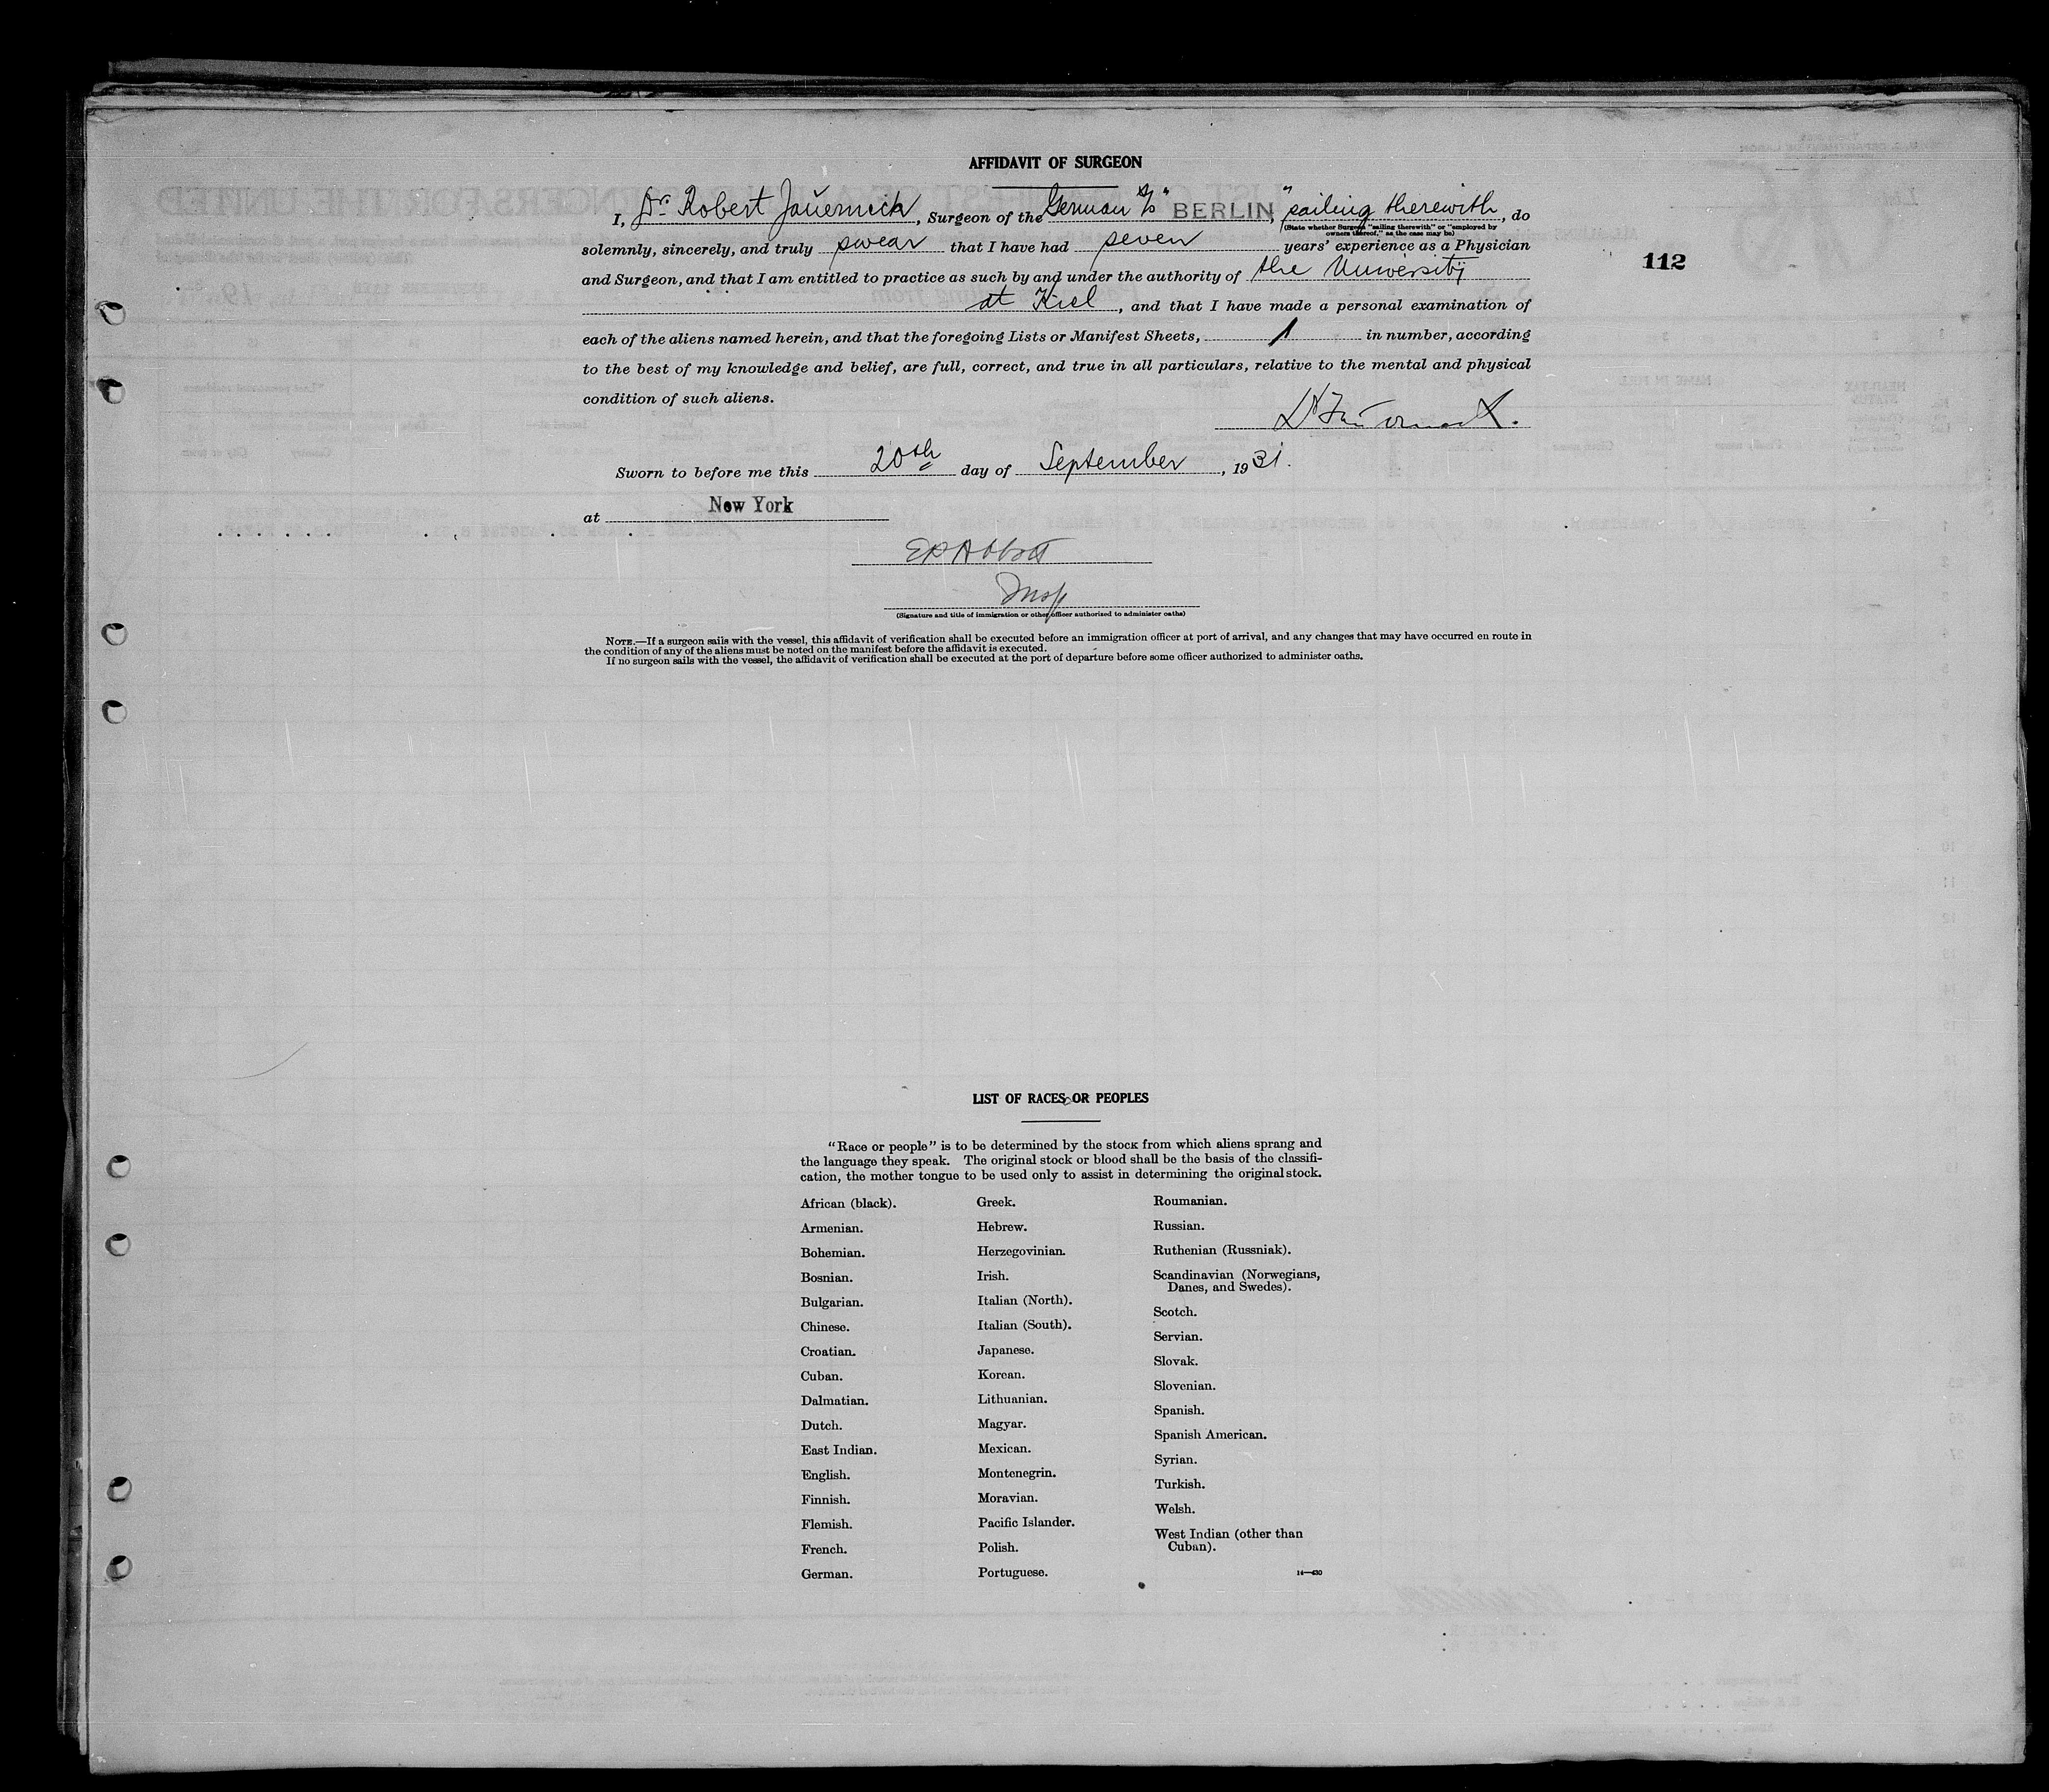 AFFIDAVIT OF SURGEON
I, Dr Robert Jauernick, Surgeon of the German S/S "BERLIN," sailing therewith, do
(State whether Surgeon "sailing therewith" or "employed by
owners thereof," as the case may be)
solemnly, sincerely, and truly swear that I have had seven years' experience as a Physician
112
and Surgeon, and that I am entitled to practice as such by and under the authority of the University
at Kiel, and that I have made a personal examination of
each of the aliens named herein, and that the foregoing Lists or Manifest Sheets, 1 in number, according
to the best of my knowledge and belief, are full, correct, and true in all particulars, relative to the mental and physical
condition of such aliens.
Sworn to before me this 20th day of September, 1931.
at New York
E P Abbott
Insp
(Signature and title of immigration or other officer authorized to administer oaths)
NOTE.—If a surgeon sails with the vessel, this affidavit of verification shall be executed before an immigration officer at port of arrival, and any changes that may have occurred en route in
the condition of any of the aliens must be noted on the manifest before the affidavit is executed.
If no surgeon sails with the vessel, the affidavit of verification shall be executed at the port of departure before some officer authorized to administer oaths.
LIST OF RACES OR PEOPLES
"Race or people" is to be determined by the stock from which aliens sprang and
the language they speak. The original stock or blood shall be the basis of the classifi-
cation, the mother tongue to be used only to assist in determining the original stock.
African (black).
Armenian.
Bohemian.
Bosnian.
Bulgarian.
Chinese.
Croatian.
Cuban.
Dalmatian.
Dutch.
East Indian.
English.
Finnish.
Flemish.
French.
German.
Greek.
Hebrew.
Herzegovinian.
Irish.
Italian (North).
Italian (South).
Japanese.
Korean.
Lithuanian.
Magyar.
Mexican.
Montenegrin.
Moravian.
Pacific Islander.
Polish.
Portuguese.
Roumanian.
Russian.
Ruthenian (Russniak).
Scandinavian (Norwegians,
Danes, and Swedes).
Scotch.
Servian.
Slovak.
Slovenian.
Spanish.
Spanish American.
Syrian.
Turkish.
Welsh.
West Indian (other than
Cuban).
14—430